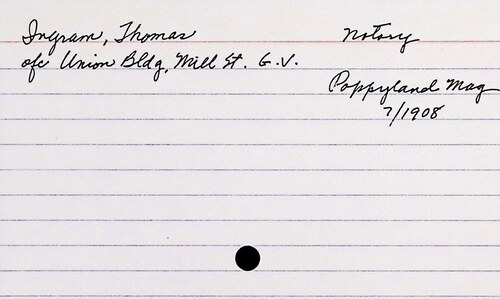 Ingram, Thomas Notary
ofc Union Bldg, Mill St. G.V.
Poppyland Mag
7/1908